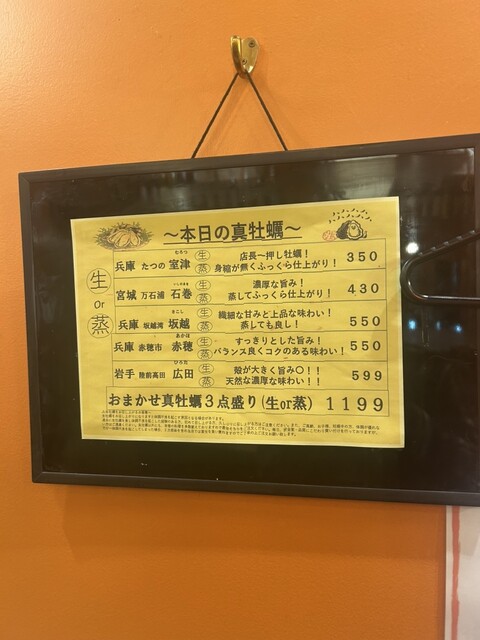 ～本日の真牡蠣～
生
or
蒸
むろつ
兵庫 たつの 室津 生 蒸 店長一押し牡蠣！ 350
身縮が無くふっくら仕上がり！
いしのまき
宮城 万石浦 石巻 生 蒸 濃厚な旨み！ 430
蒸してふっくら仕上がり！
さこし
兵庫 坂越湾 坂越 生 蒸 繊細な甘みと上品な味わい！ 550
蒸しても良し！
あかほ
兵庫 赤穂市 赤穂 生 蒸 すっきりとした旨み！ 550
バランス良くコクのある味わい！
ひろた
岩手 陸前高田 広田 生 蒸 殻が大きく旨み〇！！ 599
天然な濃厚な味わい！！
おまかせ真牡蠣３点盛り(生or蒸) 1199